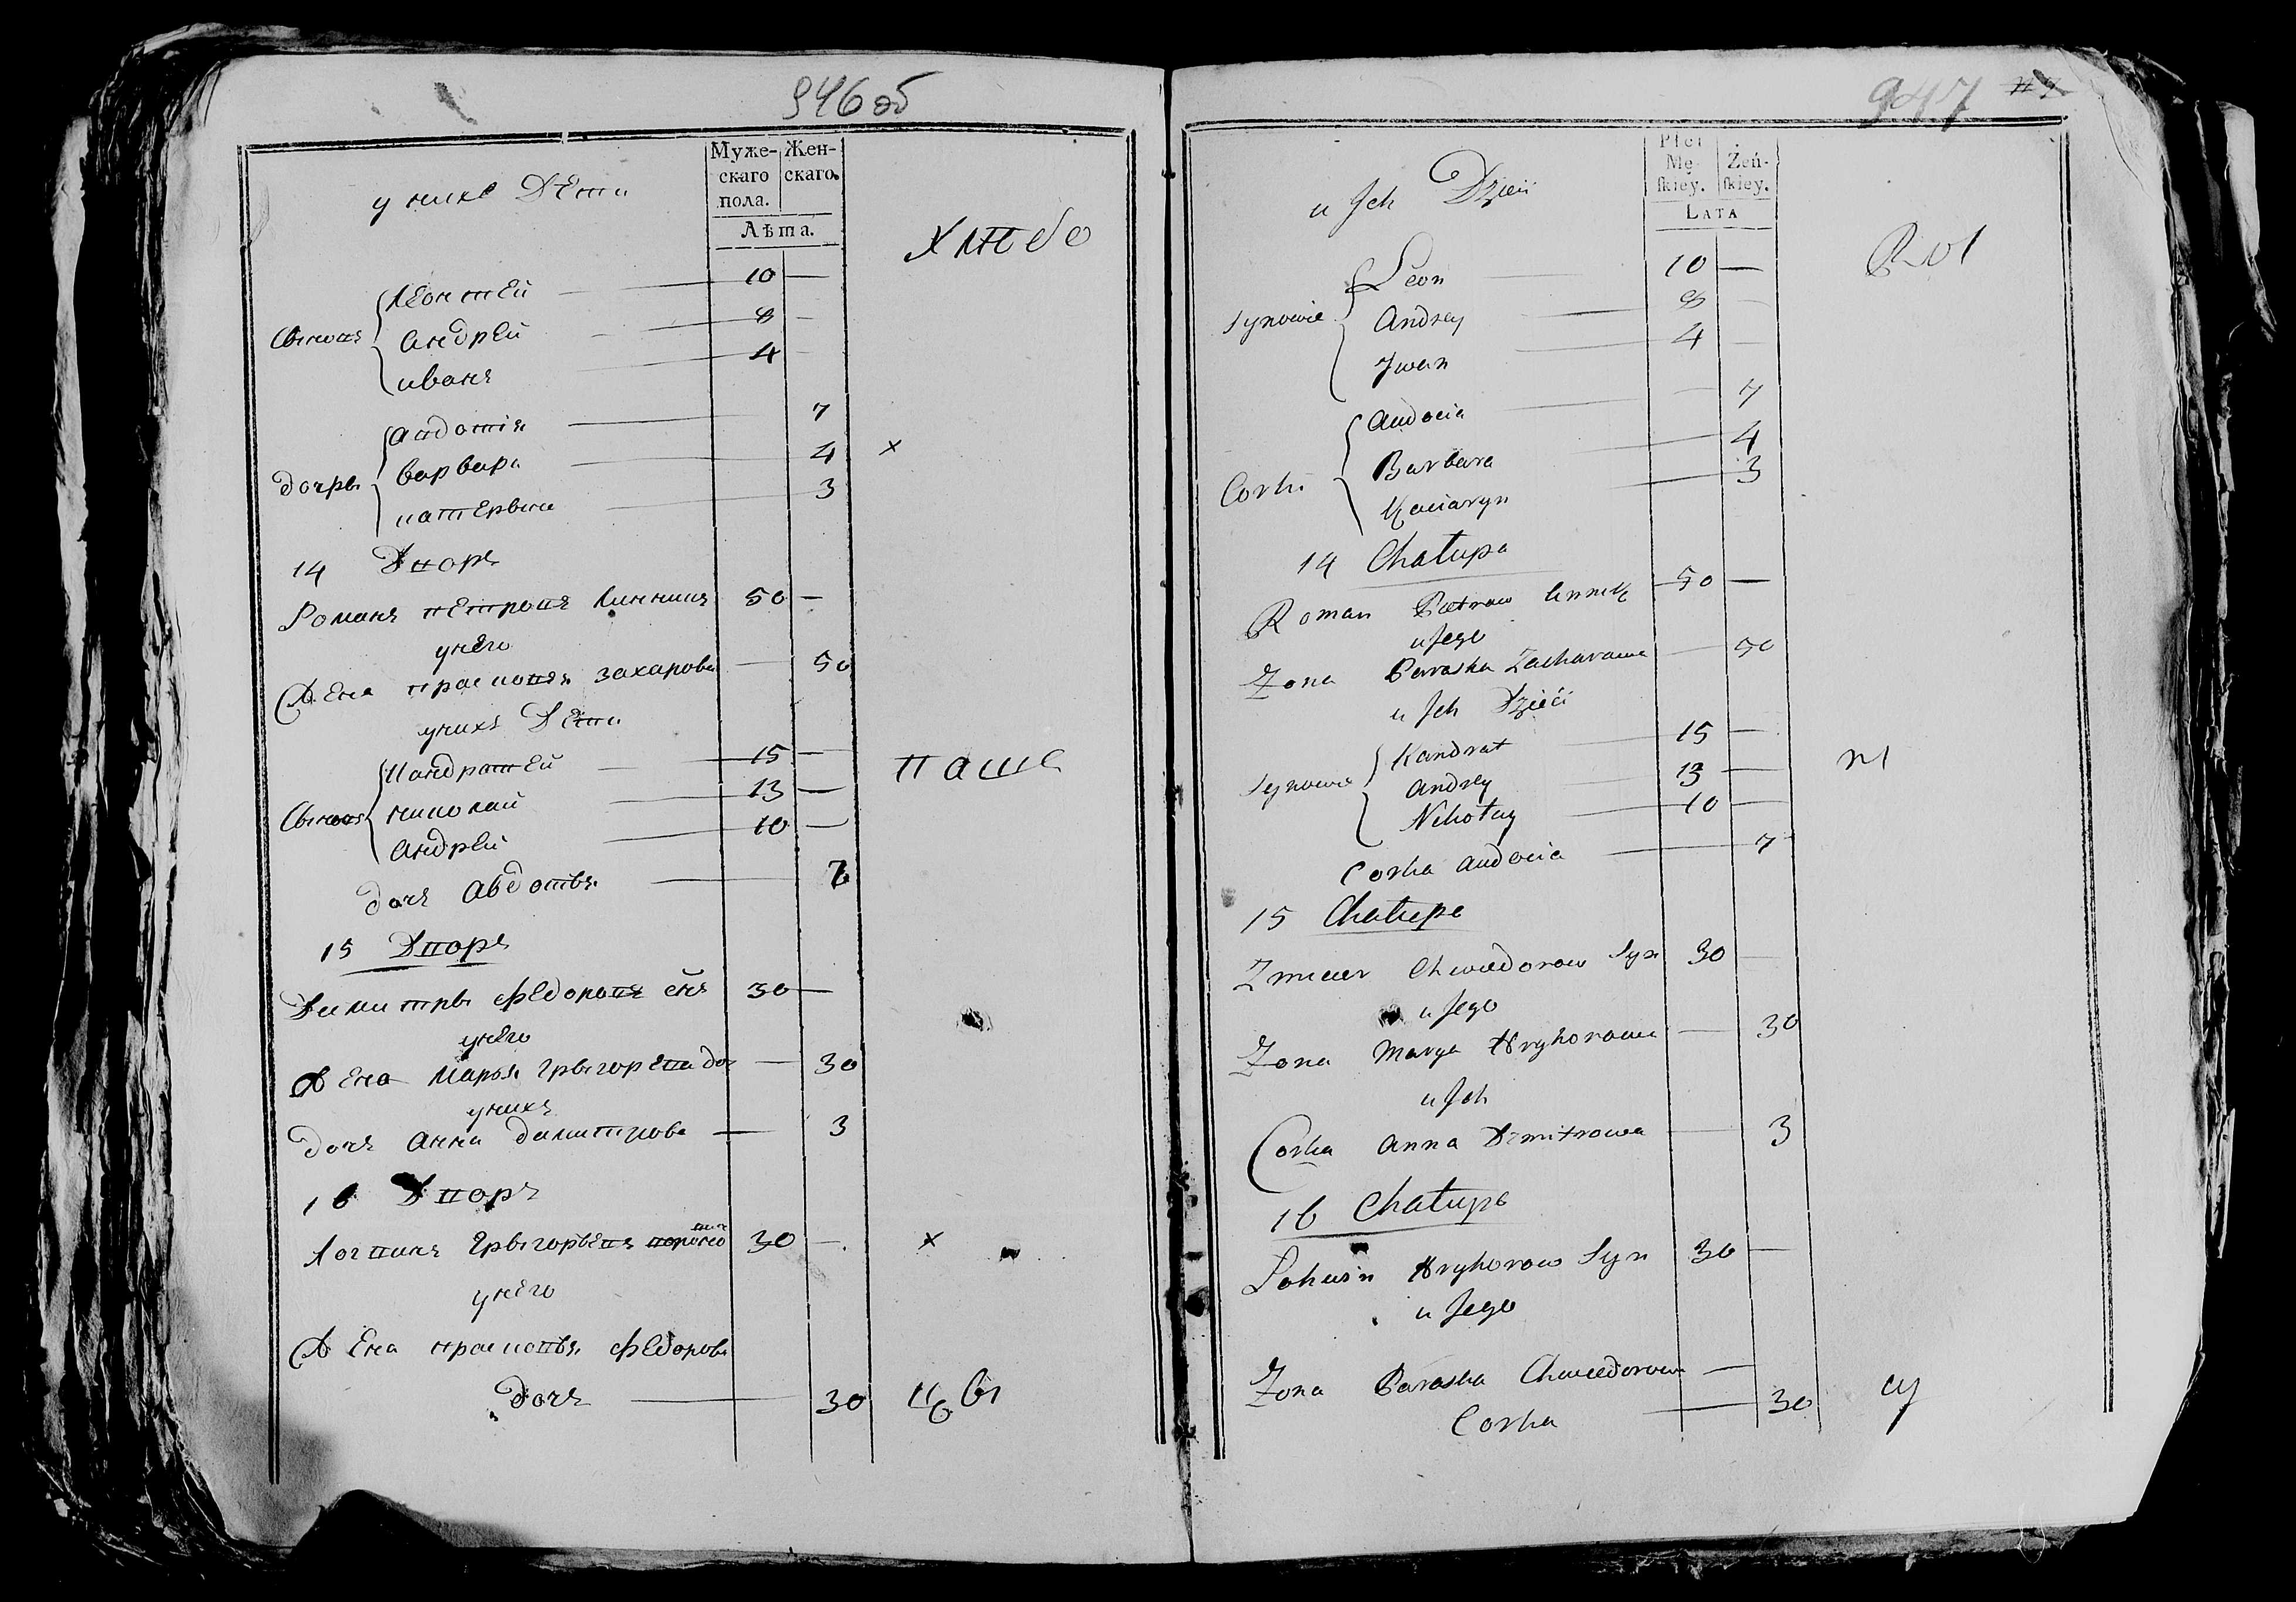 946 об
Муже-скаго пола. Жен-скаго.
Лѣта.
у нихъ Дети
Хлѣбо
Сыновя
Леонтей — 10 —
Андрей — 8 —
иванъ — 4 —
дочры
Авдотія — 7
варвара — 4 ×
катерына — 3
14 Дворъ
Романъ петровъ Линникъ 50 —
у него
Жена прасковья захарова — 50
у нихъ Дети
Сыновя
Кандратей — 15 —
николай — 13 —
Андрей — 10 —
паше
дочь Авдотья — 7
15 Дворъ
Димитры федоровъ снъ 30 —
у него
Жена Марья грыгорева до — 30
у нихъ
дочь Анна димитрова — 3
16 Дворъ
Логвинъ Грыгорьевъ 30 — ×
у него
Жена прасковья федорова
дочь — 30
947
Płci Mę-skiey. Żeń-skiey.
LATA
u Jch Dzieci
Synowie
Leon — 10 —
Andrey — 8 —
Jwan — 4 —
Corki
Audocia — 7
Barbara — 4
Kaciaryn — 3
14 Chałupa
Roman Pietrow Linnik 50 —
u Jego
Zona Paraska Zacharowa — 50
u Jch Dzieci
Synowie
Kandrat — 15 —
Andrey — 13 —
Nikołay — 10 —
Corka Audocia — 7
15 Chałupa
Zmicier Chwiedorow Syn 30 —
u Jego
Zona Marya Hryhorowa — 30
u Jch
Corka Anna Dzmitrowa — 3
16 Chałupa
Lohwin Hryhorow Syn 30 —
u Jego
Zona Paraska Chwiedorowa —
Corka — 30